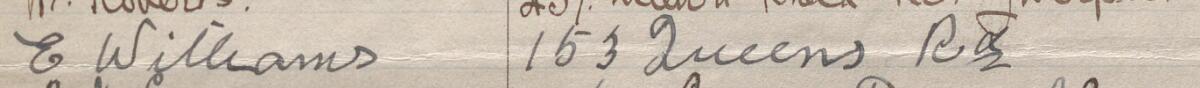 E Williams 153 Queens Rd